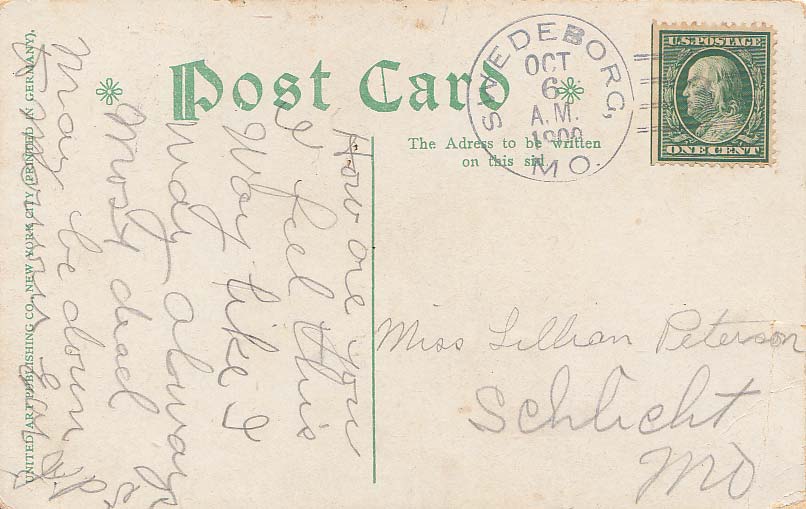 Post Card
The Adress to be written
on this sid
SWEDEBORG,
OCT
6
A.M.
1909
MO.
U.S. POSTAGE
ONE CENT
UNITED ART PUBLISHING CO., NEW YORK CITY (PRINTED IN GERMANY),
How are you
I feel this
Way like I
Most dead
May be down
Miss Lillian Peterson
Schlicht
MO